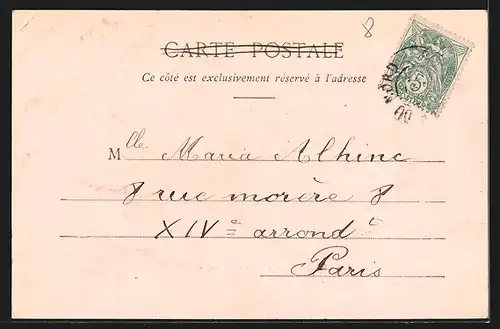 8
CARTE POSTALE
Ce côté est exclusivement réservé à l'adresse
Mlle Maria Alhinc
8 rue morère 8
XIVe arrondt
Paris
5